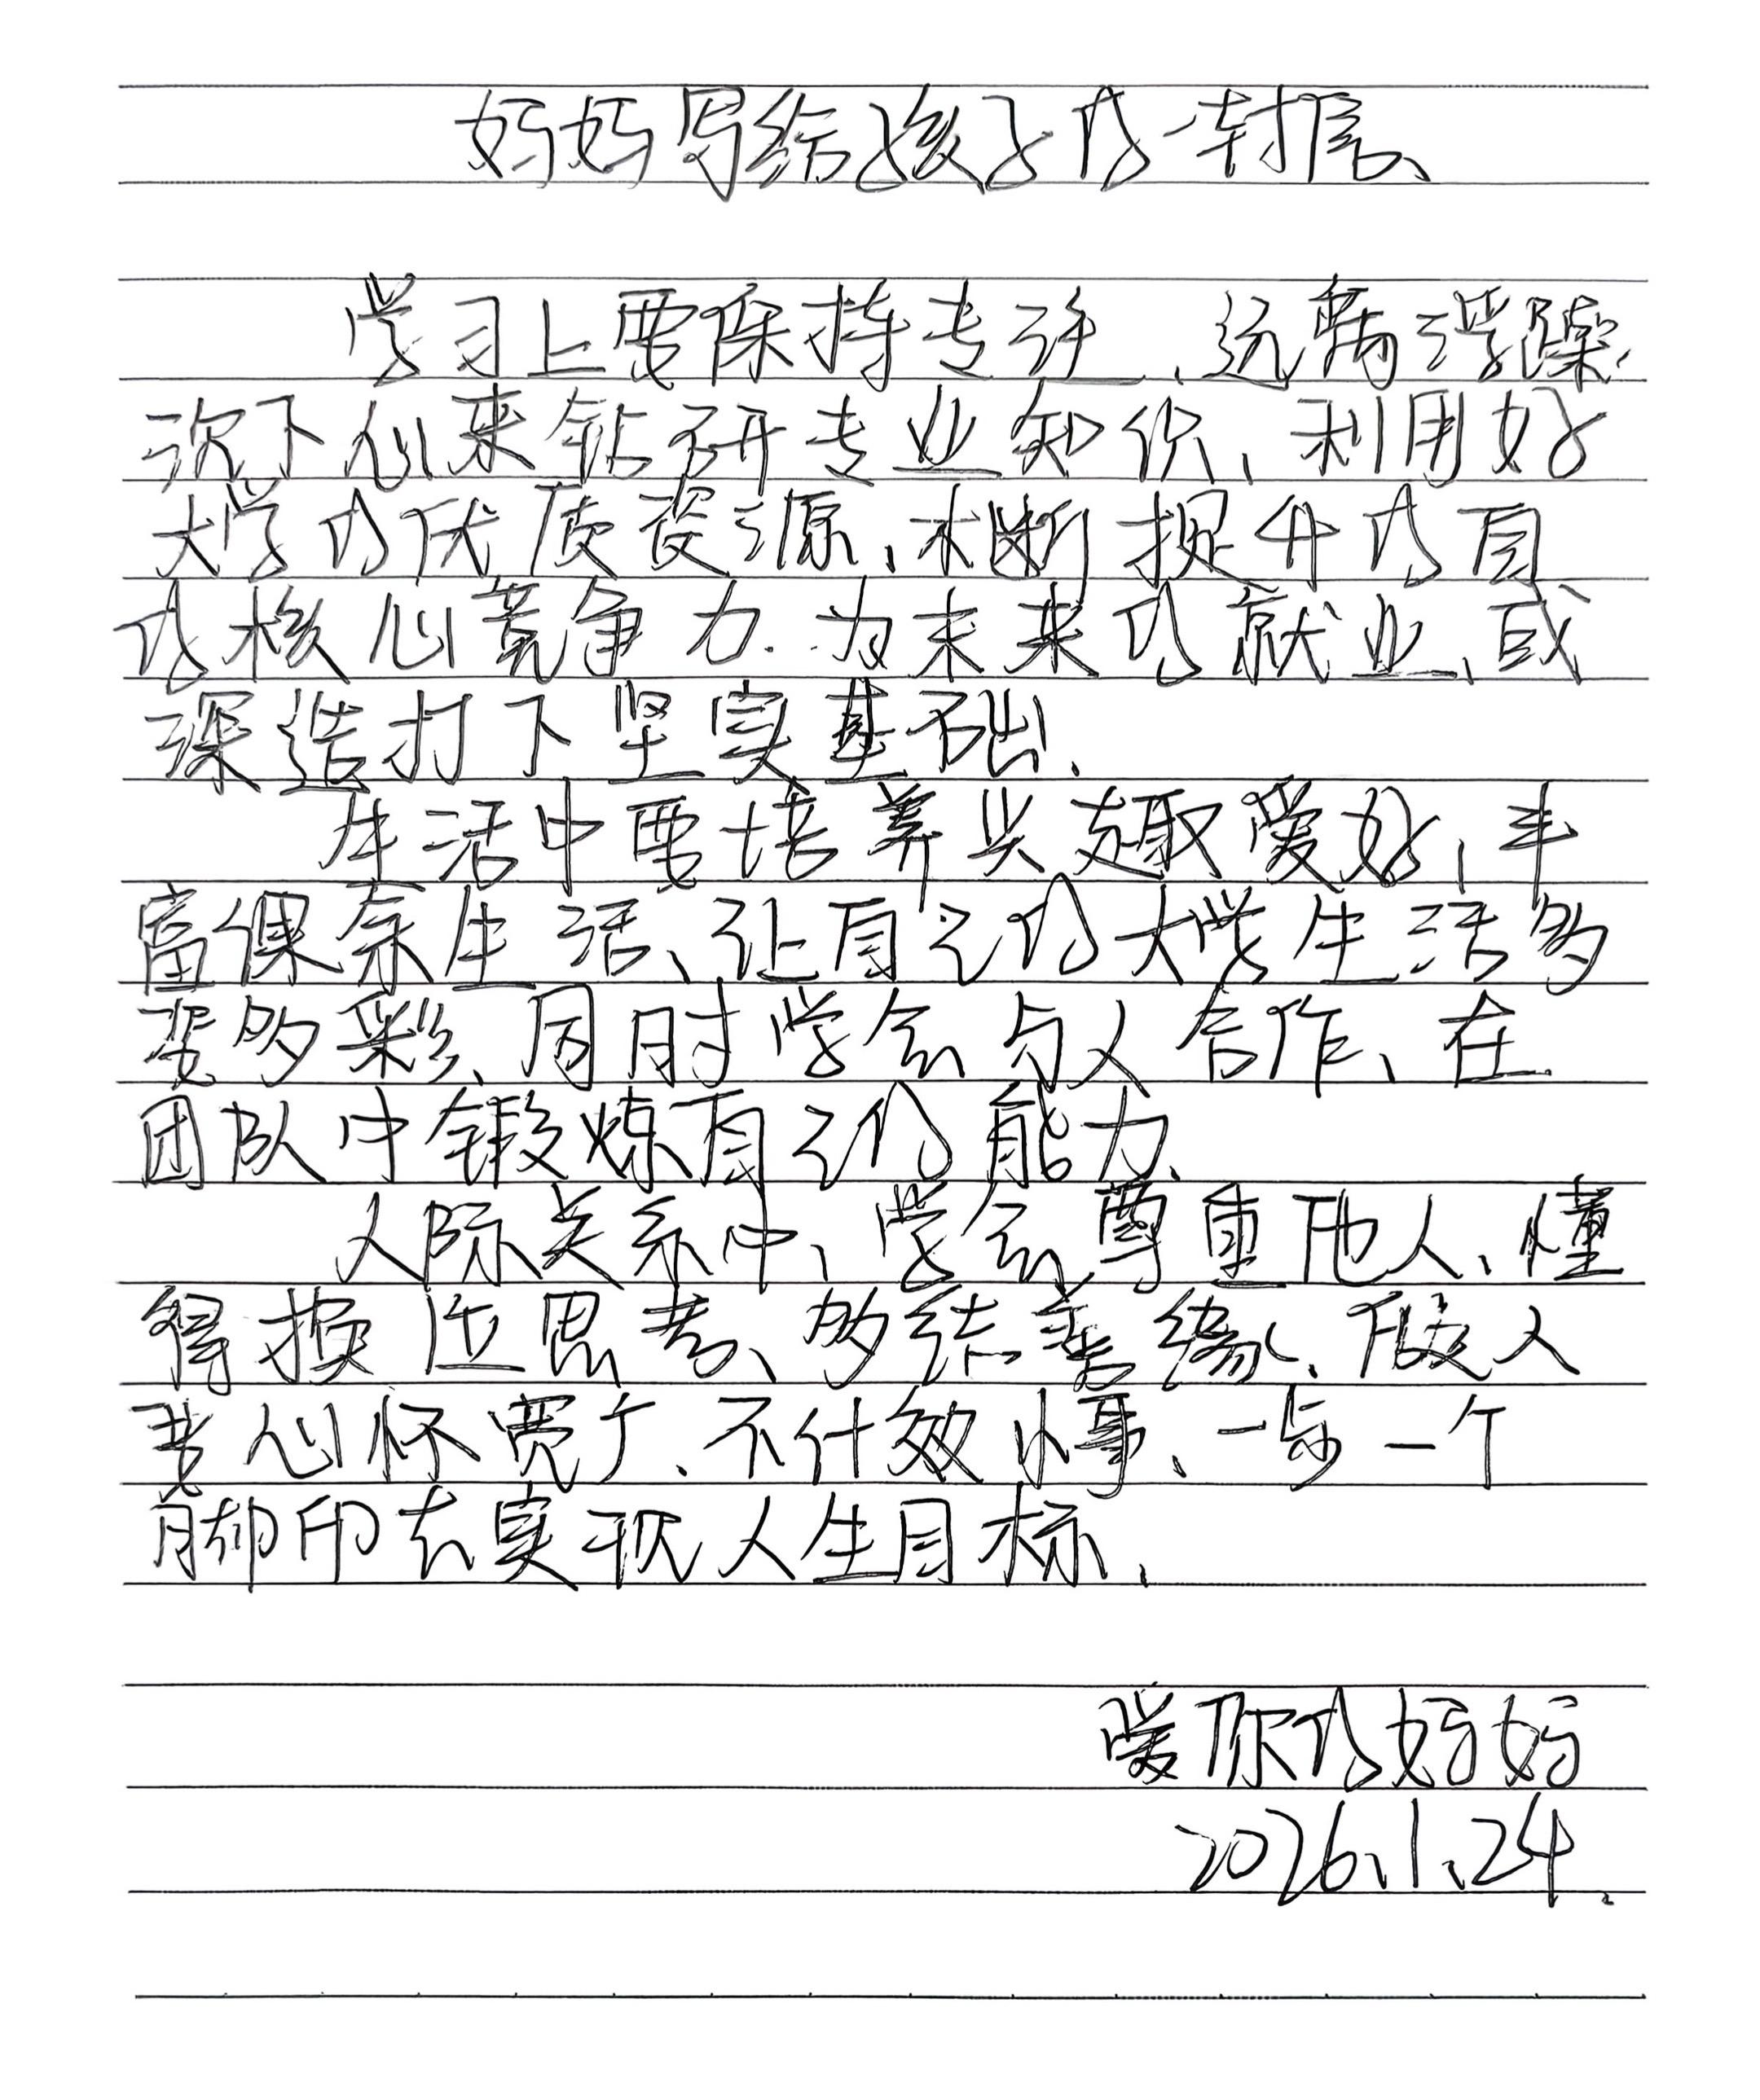 妈妈写给孩子的一封信、
学习上要保持专注、远离浮躁.
沉下心来钻研专业知识、利用好
大学的优质资源、不断提升的自
的核心竞争力.为未来的就业、或
深造打下坚实基础、
生活中要培养兴趣爱好、丰
富课余生活、让自己的大学生活多
姿多彩、同时学会与人合作、在
团队中锻炼自己的能力、
人际关系中、学会尊重他人、懂
得换位思考、多结善缘、做人
要心怀宽广、不计较小事、一步一个
脚印去实现人生目标、
爱你的妈妈
2026、1、24.